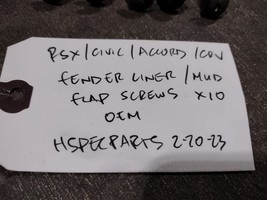 RSX/CIVIC/ACCORD/CRV
FENDER LINER/MUD
FLAP SCREWS X10
OEM
HSPECPARTS 2-20-23